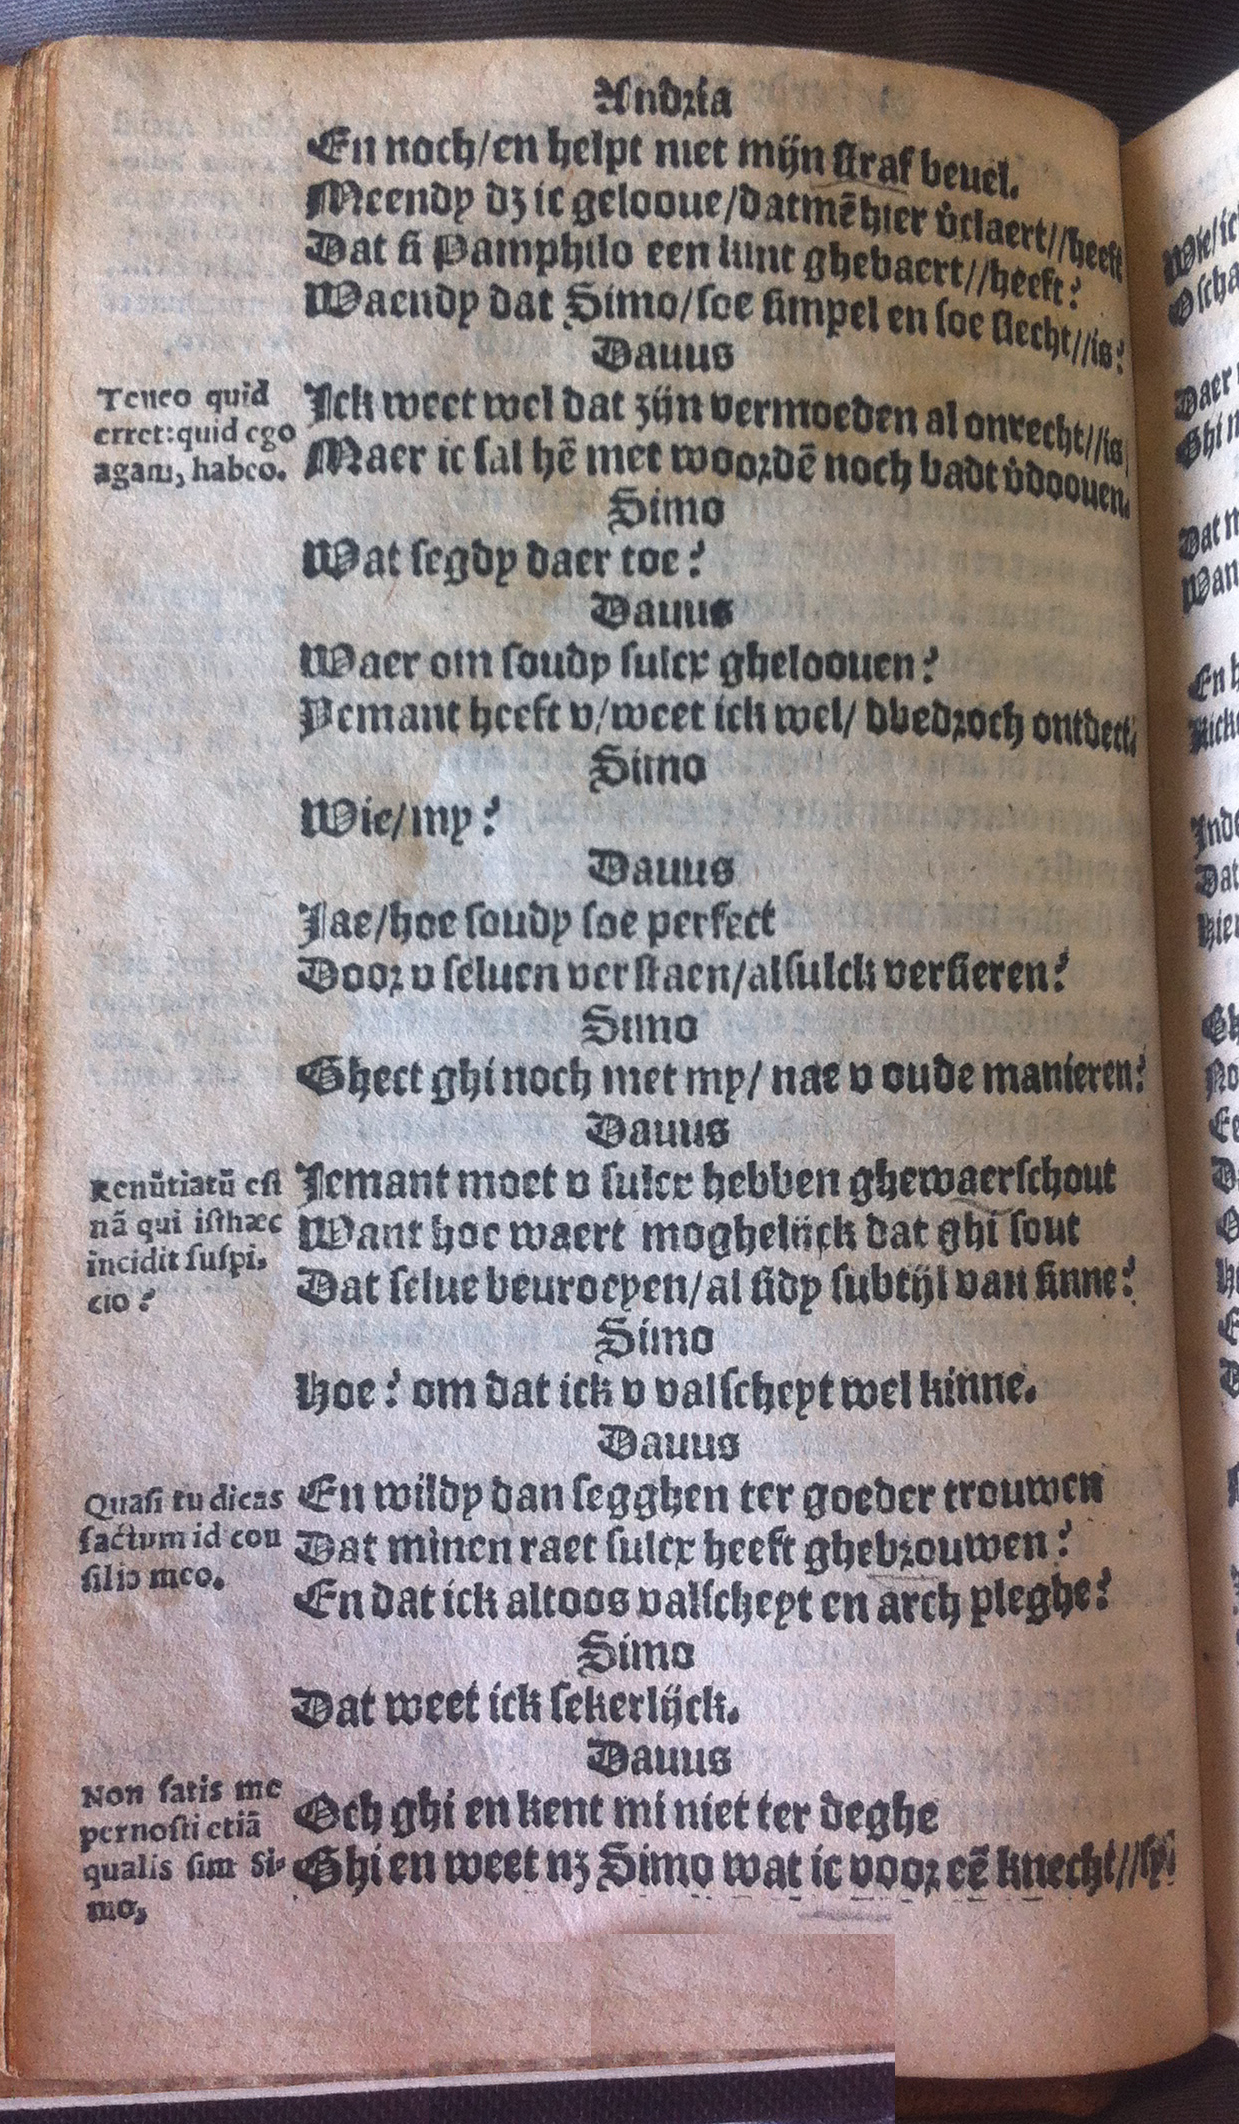 Andria
En noch/en helpt niet mijn straf beuel.
Meendy dz ic gelooue/datmē hier v̊claert//heeft
Dat si Pamphilo een kint ghebaert//heeft?
Waendy dat Simo/soe simpel en soe slecht//is?
Dauus
Teneo quid
erret: quid ego
agam, habeo.
Ick weet wel dat zijn vermoeden al onrecht//is
Maer ic sal hē met woordē noch badt v̊doouen.
Simo
Wat segdy daer toe?
Dauus
Waer om soudy sulcx gheloouen?
Yemant heeft v/weet ick wel/ dbedroch ontdect.
Simo
Wie/my?
Dauus
Jae/hoe soudy soe perfect
Door v seluen verstaen/alsulck versieren?
Simo
Ghect ghi noch met my/ nae v oude manieren?
Dauus
Renūtiatū est
nā qui isthæc
incidit suspi,
cio?
Jemant moet v sulcx hebben ghewaerschout
Want hoe waert moghelijck dat ghi sout
Dat selue beuroeyen/al sidy subtijl van sinne?
Simo
Hoe? om dat ick v valscheyt wel kinne.
Dauus
Quasi tu dicas
factum id con
silio meo.
En wildy dan segghen ter goeder trouwen
Dat minen raet sulcx heeft ghebrouwen?
En dat ick altoos valscheyt en arch pleghe?
Simo
Dat weet ick sekerlijck.
Dauus
Non satis me
pernosti etiā
qualis sim Si-
mo,
Och ghi en kent mi niet ter deghe
Ghi en weet nz Simo wat ic voor eē knecht//sy.